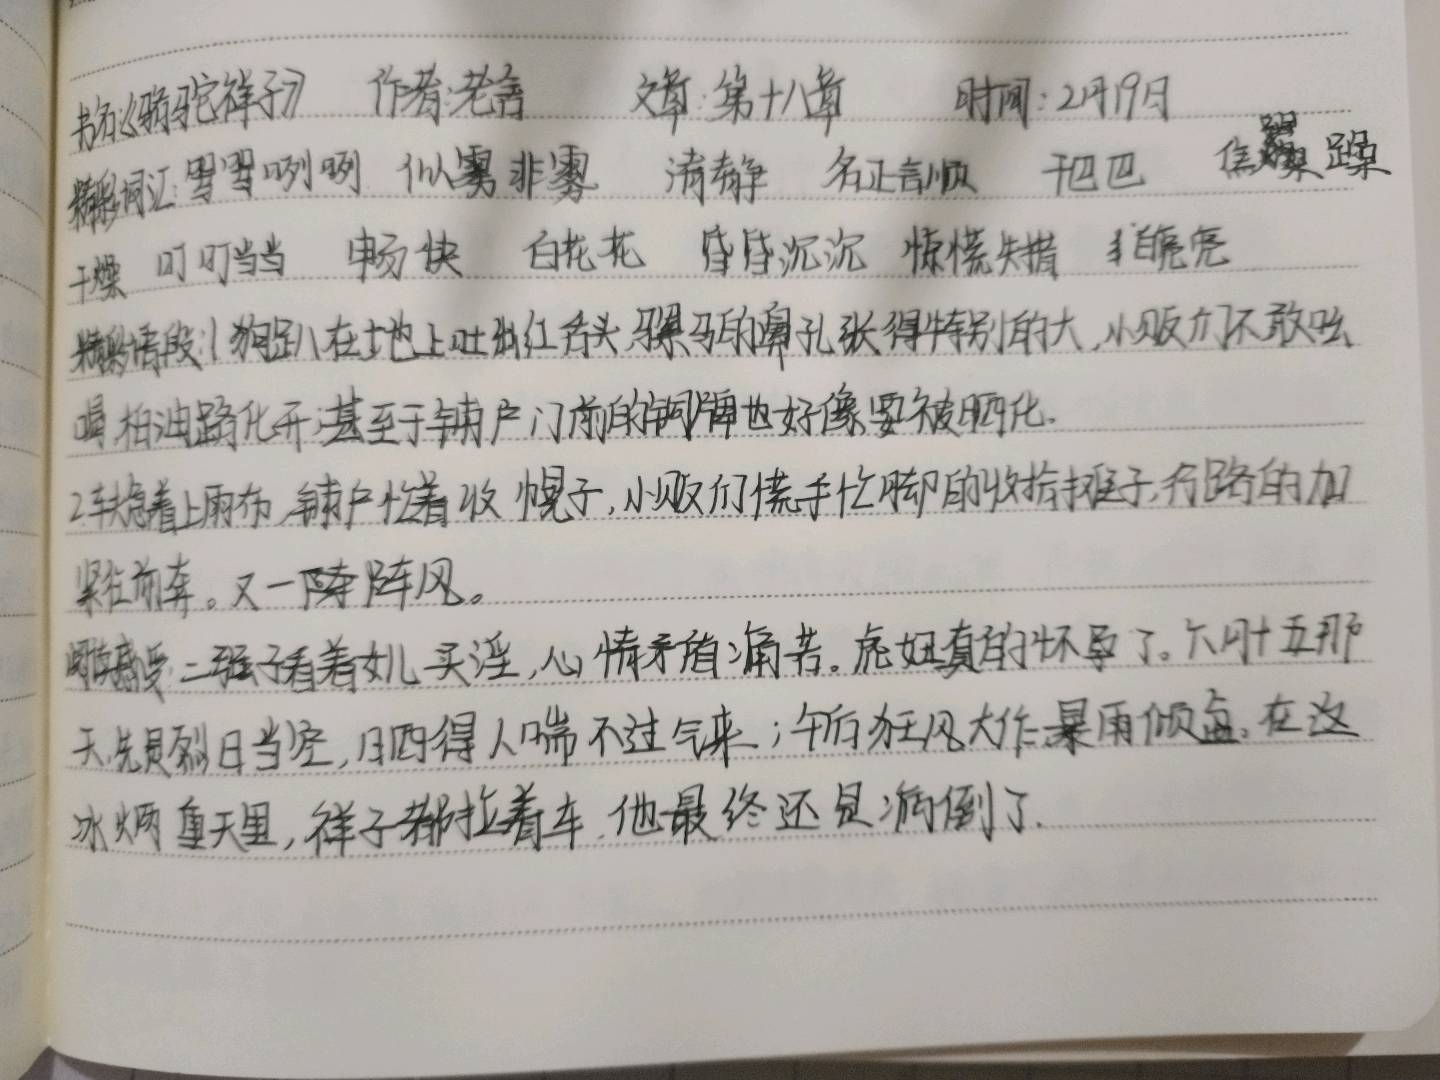 书名:《骆驼祥子》 作者:老舍 文章:第十八章 时间:2月19日
精彩词汇:雪雪咧咧 似雾非雾 清静 名正言顺 干巴巴 焦躁
干燥 叮叮当当 畅快 白花花 昏昏沉沉 惊慌失措
精彩情段:1狗趴在地上吐出红舌头,骡马的鼻孔张得特别的大,小贩们不敢吆
喝,柏油路化开;甚至于铺户门前的铜牌也好像要被晒化.
2车夫急着上雨布,铺户忙着收幌子,小贩们慌手忙脚的收拾摊子,行路的加
紧往前奔。又一阵阵风。
阅读感受:二强子看着女儿卖淫,心情矛盾痛苦。虎妞真的怀孕了。六月十五那
天,先是烈日当空,晒得人喘不过气来;午后狂风大作,暴雨倾盆.在这
冰炳重天里,祥子都拉着车.他最终还是病倒了.